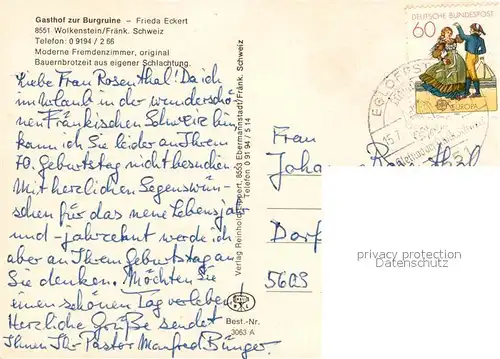 Gasthof zur Burgruine - Frieda Eckert
8551 Wolkenstein/Fränk. Schweiz
Telefon: 0 91 94 / 2 66
Moderne Fremdenzimmer, original
Bauernbrotzeit aus eigener Schlachtung.
Liebe Frau Rosenthal! Da ich
im Urlaub in der wunderschö-
nen Fränkischen Schweiz bin,
kann ich Sie leider an Ihrem
70. Geburtstag nicht besuchen.
Mit herzlichen Segenswün-
schen für das neue Lebensjahr
und -jahrzehnt werde ich
aber an Ihrem Geburtstag an
Sie denken. Möchten Sie
einen schönen Tag verleben!
Herzliche Grüße sendet
Ihnen Ihr Pastor Manfred Bünger.
Verlag Reinhold 8553 Ebermannstadt/Fränk. Schweiz
Telefon 0 91 94 / 5 14
Best.-Nr.
3063 A
DEUTSCHE BUNDESPOST
60
EUROPA
EGLOFFST
15.7.
Frau
Joha
Rosenthal
Dorf
5609
privacy protection
Datenschutz